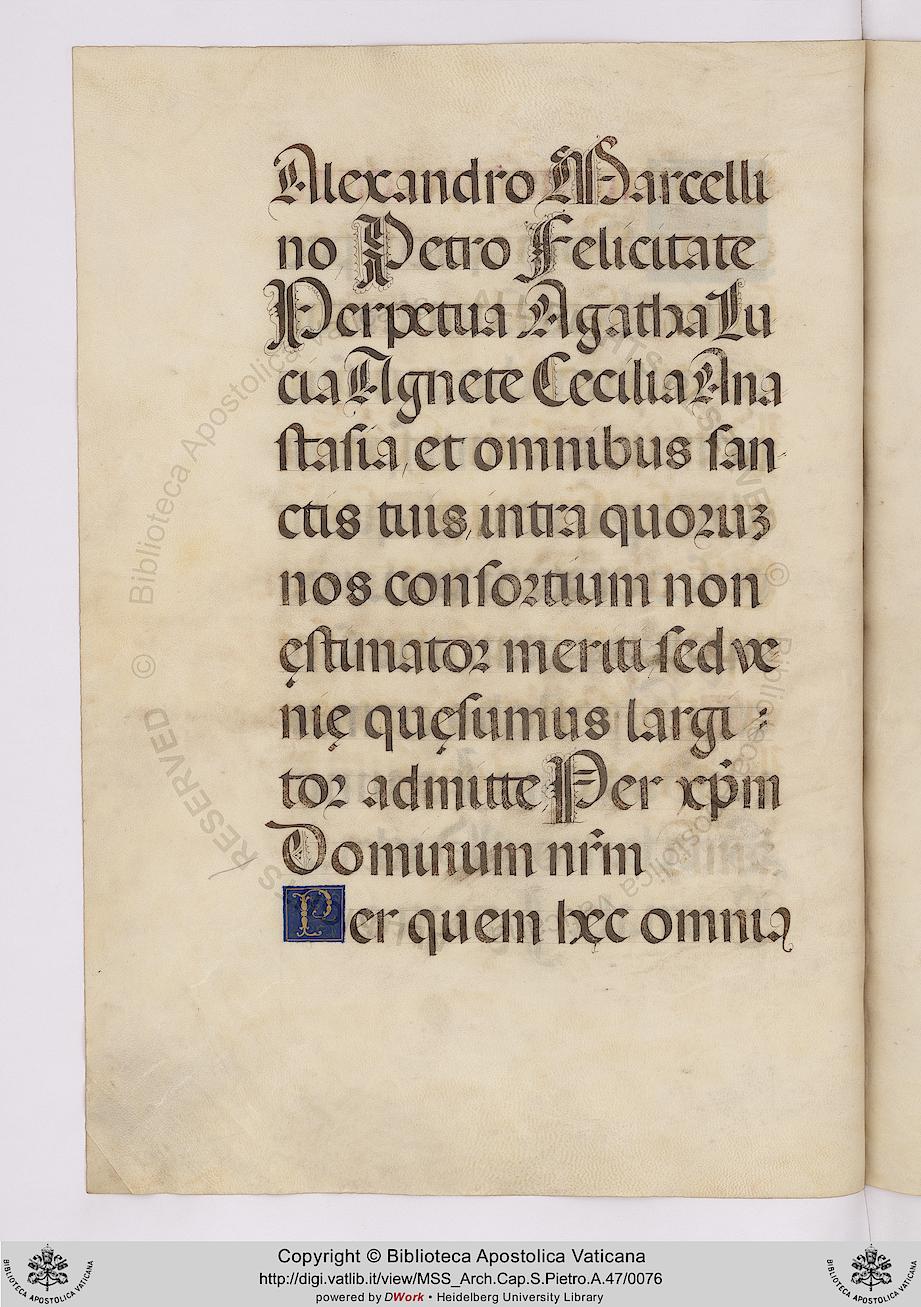 Alexandro Marcelli
no Petro Felicitate
Perpetua Agatha Lu
cia Agnete Cecilia Ana
ſtaſia, et omnibus ſan-
ctis tuis, intra quoꝛuꝫ
nos conſoꝛtium non
ęſtimatoꝛ meriti ſed ve
nię quęſumus largi
toꝛ admitte Per xp̄m
Dominum nr̄m
Per quem hęc omnia
Copyright © Biblioteca Apostolica Vaticana
http://digi.vatlib.it/view/MSS_Arch.Cap.S.Pietro.A.47/0076
powered by DWork • Heidelberg University Library
BIBLIOTECA APOSTOLICA VATICANA
BIBLIOTECA APOSTOLICA VATICANA